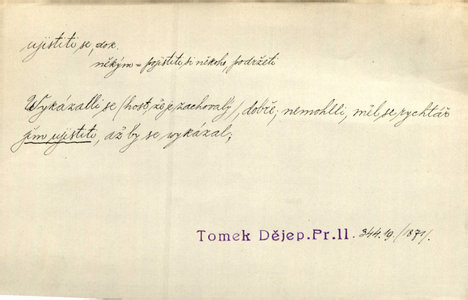 ujistiti se, dok.
někým = pojistiti si někoho, podržeti
Wykázalli se (host, že je zachovalý), dobře; nemohlli, měl se rychtář
jím ujistiti, až by se wykázal;
Tomek Dějep. Pr. II. 344. 19. (1871).